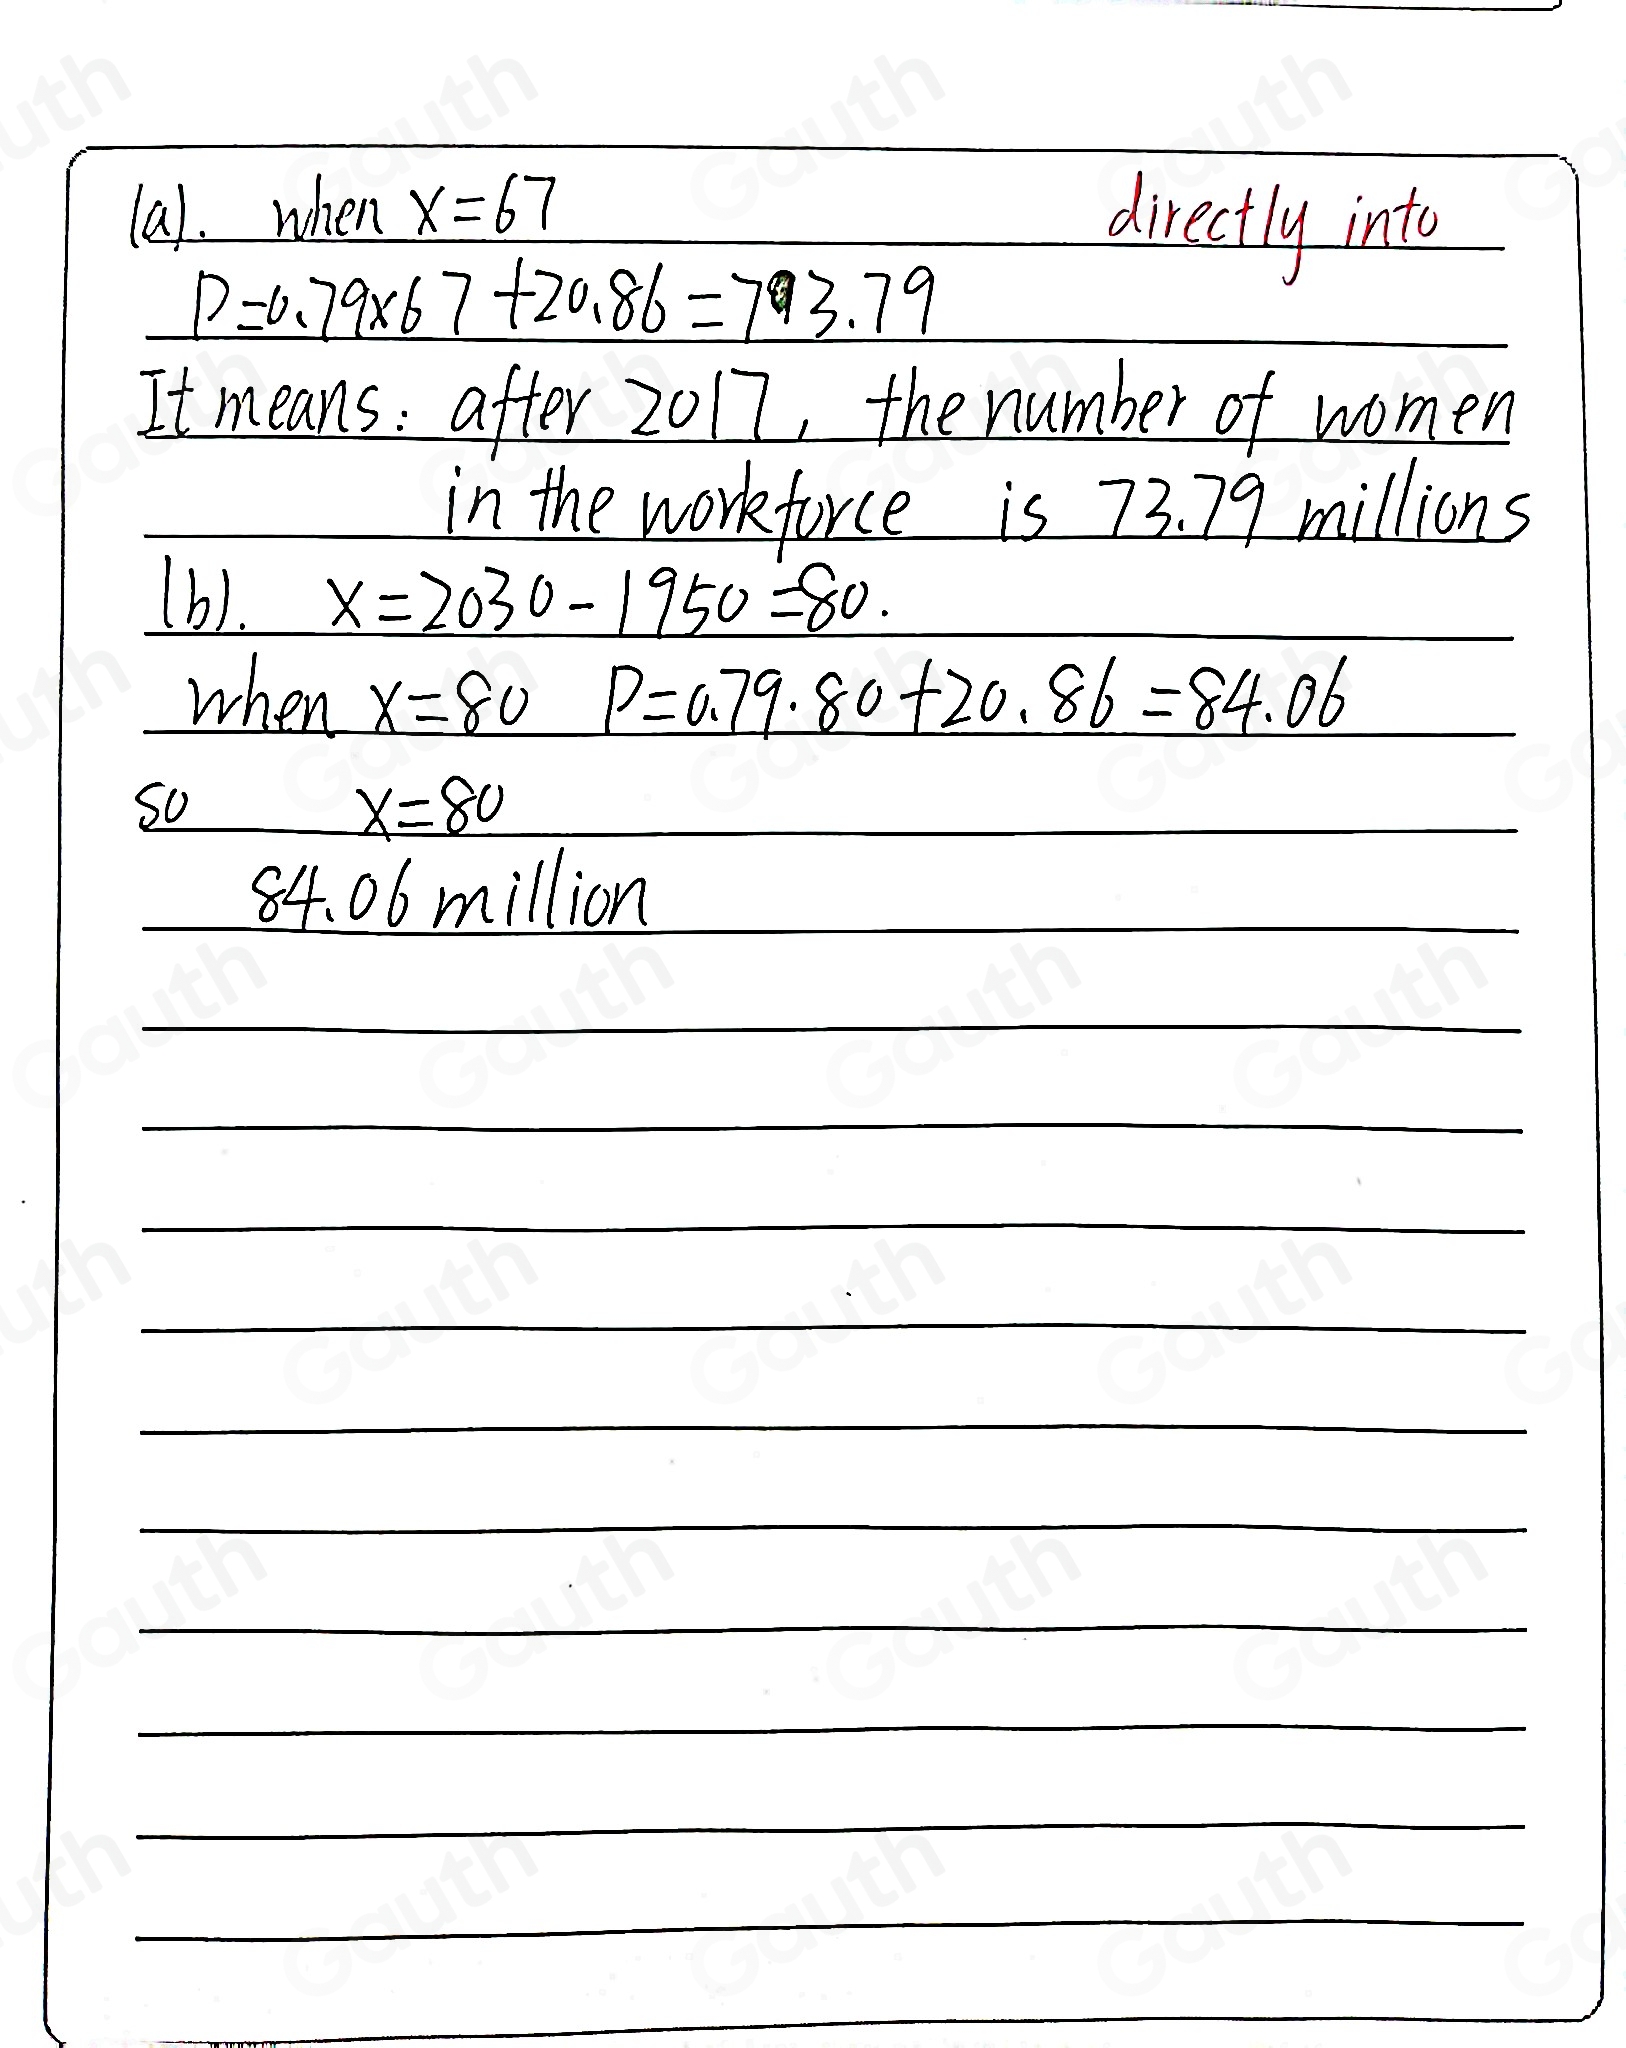 (a). when x=67 directly into
P=0.79×67+20.86=73.79
It means: after 2017, the number of women
in the workforce is 73.79 millions
(b). x=2030-1950=80.
when x=80 P=0.79·80+20.86=84.06
so x=80
84.06 million